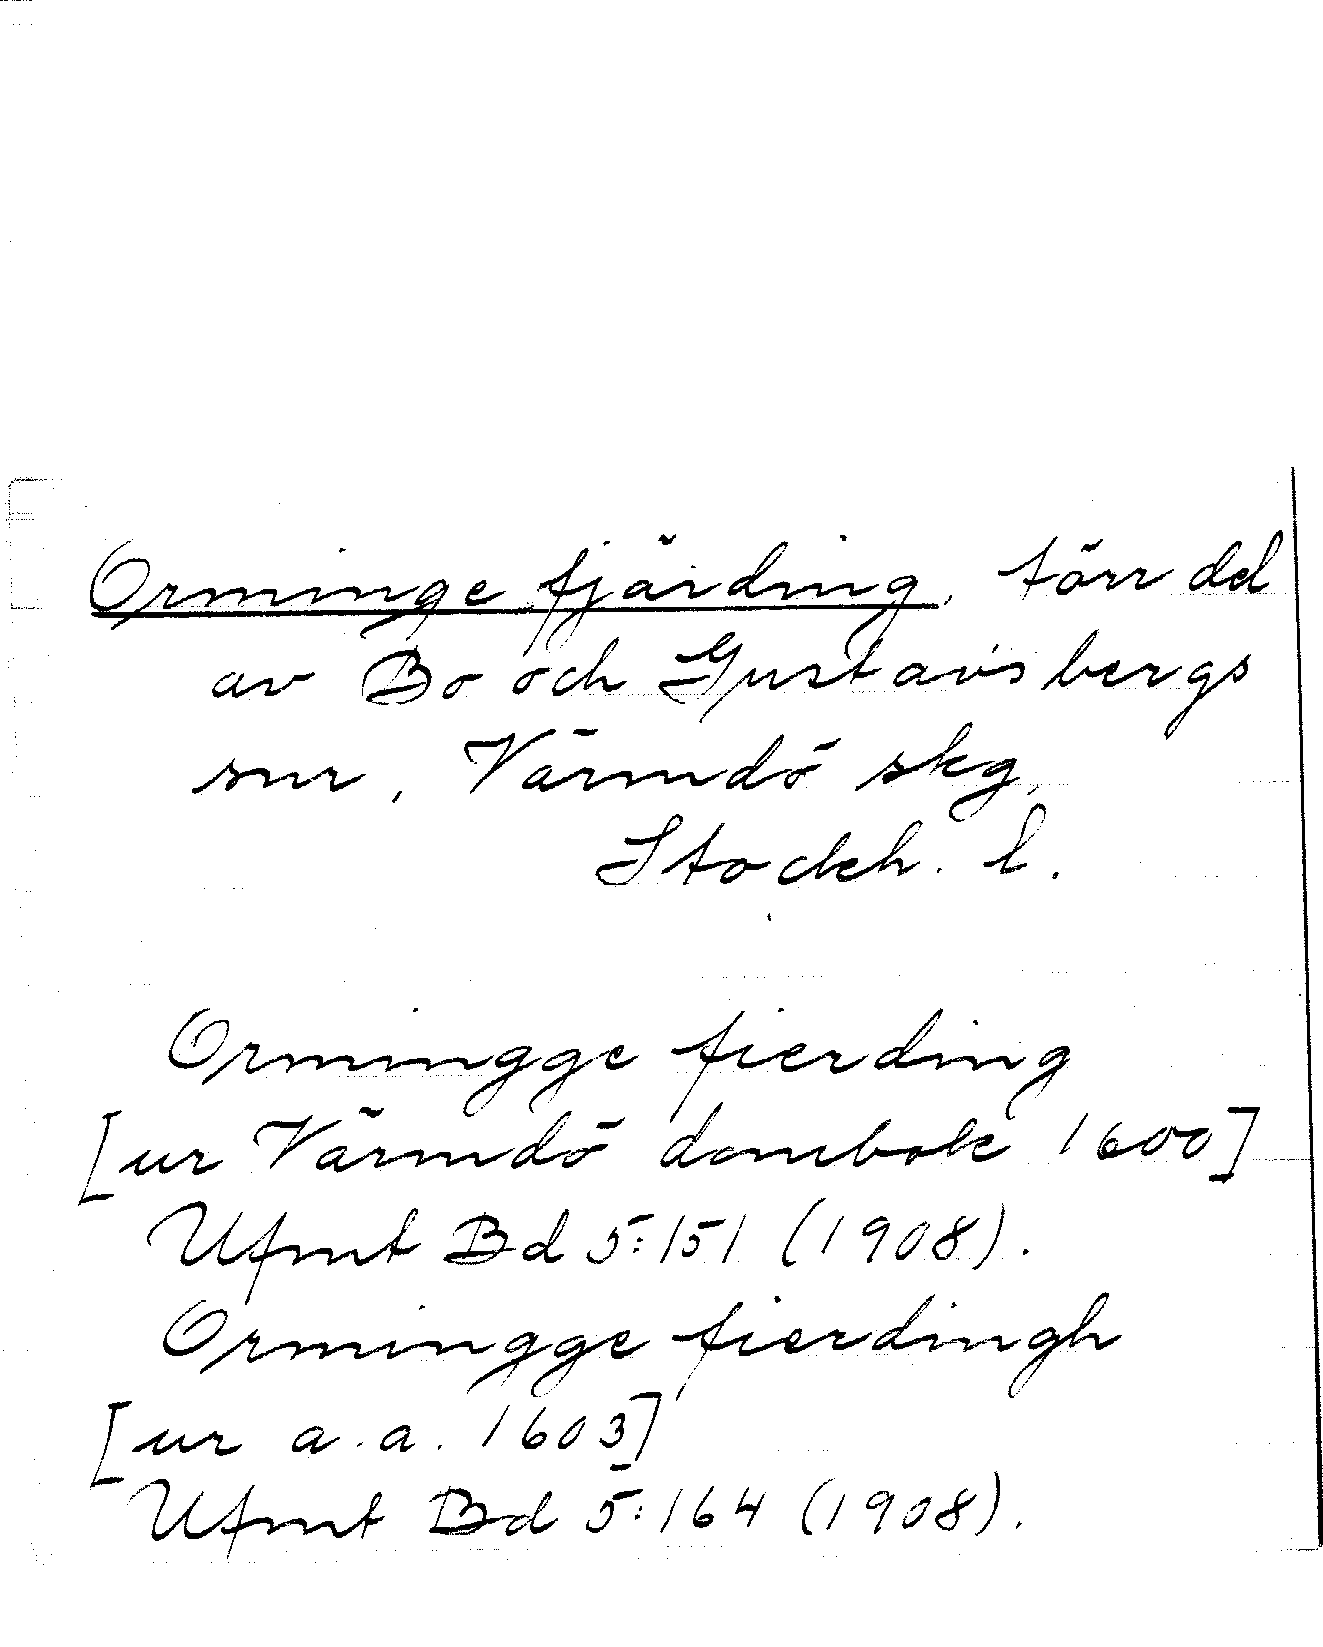 Orminge fjärding, förr del
av Bo och Gustavsbergs
snr, Värmdö skg,
Stockh. l.
Ormingge fierding
[ur Värmdö dombok 1600]
Ufmt Bd 5:151 (1908).
Ormingge fierdingh
[ur a.a. 1603]
Ufmt Bd 5:164 (1908).